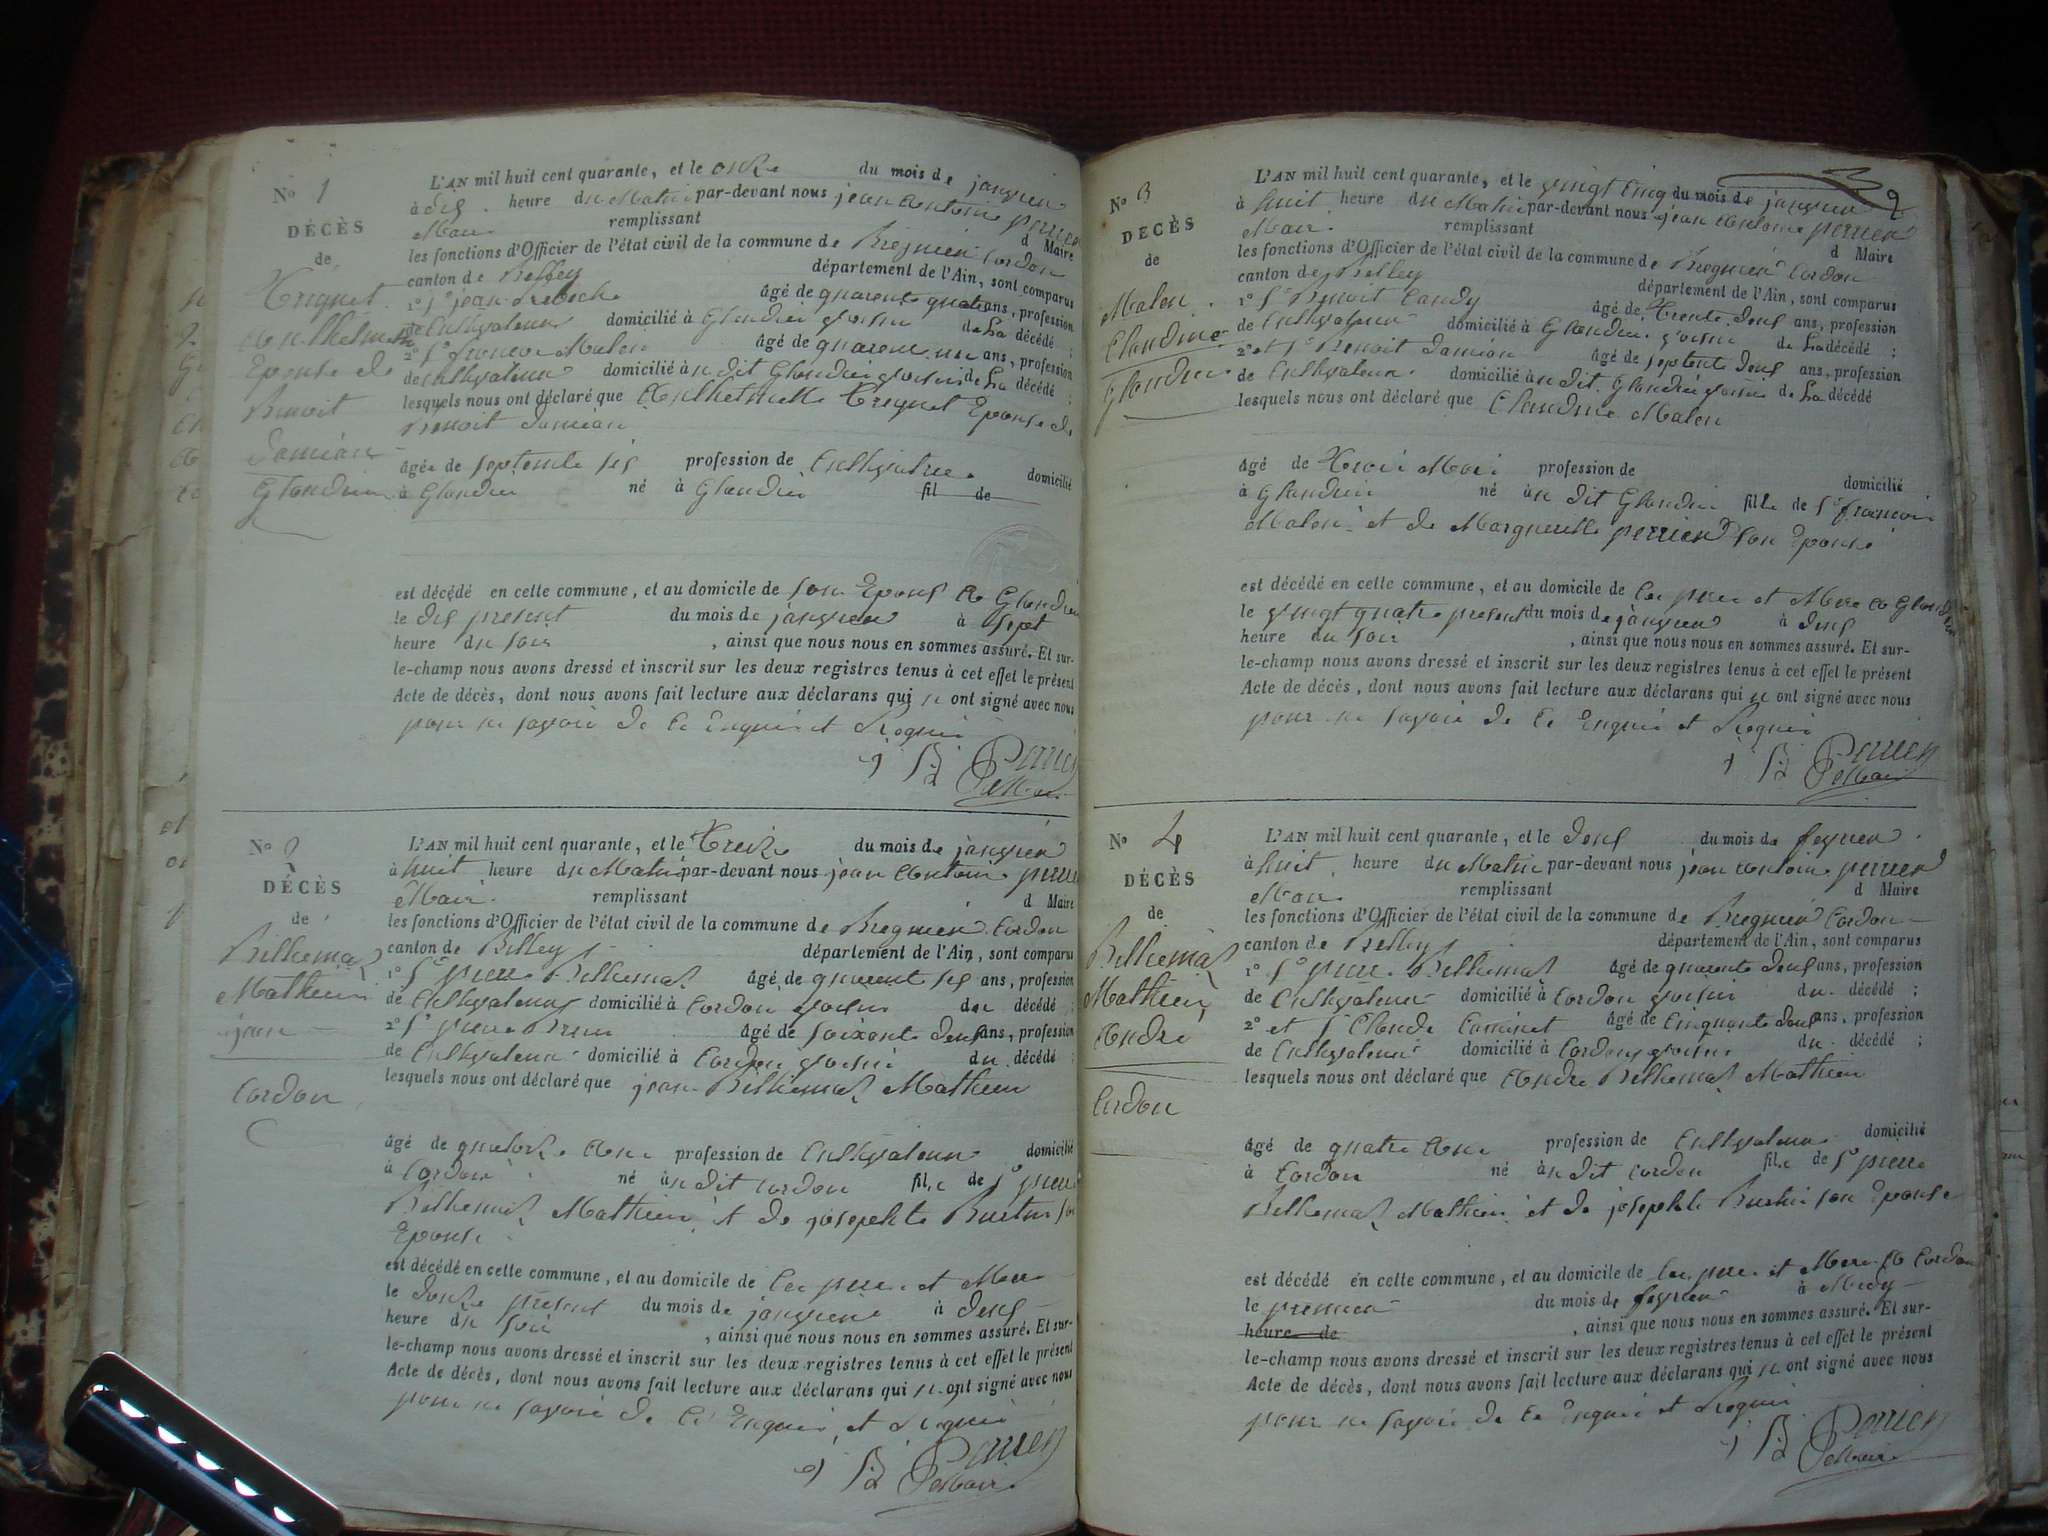 No 1
DÉCÈS
de
Benoit
Damian
Glandieu
L'AN mil huit cent quarante, et le onze du mois de janvier
à dix heure du Matin par-devant nous jean Antoine perrier
Maire remplissant d Maire
les fonctions d'Officier de l'état civil de la commune de Bregnier Cordon
canton de Belley département de l'Ain, sont comparus
1o Sr jean âgé de quarente quatre ans, profession
de Cultivateur domicilié à Glandieu voisin de La décédé ;
2o Sr françois Malen âgé de quarente un ans, profession
de cultivateur domicilié à u dit Glandieu voisin de La décédé ;
lesquels nous ont déclaré que Epouse de
Benoit damian
âgée de septente six profession de Cultivatrice domicilié
à Glandieu né à Glandieu fil de
est décédé en cette commune, et au domicile de son Epoux A Glandieu
le dix present du mois de janvier à sept
heure du soir , ainsi que nous nous en sommes assuré. Et sur-
le-champ nous avons dressé et inscrit sur les deux registres tenus à cet effet le présent
Acte de décès, dont nous avons fait lecture aux déclarans qui n ont signé avec nous
pour ne savoir de ce Enquis et Requis
Perrier
Maire
No 2
DÉCÈS
de
Billiemaz
Mathieu
jean
Cordon
L'AN mil huit cent quarante, et le Treize du mois de janvier
à huit heure du Matin par-devant nous jean Antoine perrier
Maire remplissant d Maire
les fonctions d'Officier de l'état civil de la commune de Bregnier Cordon
canton de Belley département de l'Ain, sont comparus
1o Sr pierre Billiemaz âgé de quarente six ans, profession
de Cultivateur domicilié à Cordon voisin du décédé ;
2o Sr pierre âgé de soixante deux ans, profession
de Cultivateur domicilié à Cordon voisin du décédé ;
lesquels nous ont déclaré que jean Billiemaz Mathieu
âgé de quatorze Ans profession de Cultivateur domicilié
à Cordon né à u dit cordon fils de Sr pierre
Billiemaz Mathieu et de josephte Buctin son
Epouse
est décédé en cette commune, et au domicile de Ces pere et Mere
le douze présent du mois de janvier à deux
heure du soir , ainsi que nous nous en sommes assuré. Et sur-
le-champ nous avons dressé et inscrit sur les deux registres tenus à cet effet le présent
Acte de décès, dont nous avons fait lecture aux déclarans qui n ont signé avec nous
pour ne savoir de ce Enquis et Requis
Perrier
Maire
No 3
DÉCÈS
de
Malen
Claudine
Glandieu
L'AN mil huit cent quarante, et le vingt Cinq du mois de janvier
à huit heure du Matin par-devant nous jean Antoine perrier
Maire remplissant d Maire
les fonctions d'Officier de l'état civil de la commune de Bregnier Cordon
canton de Belley département de l'Ain, sont comparus
1o Sr Benoit Candy âgé de Trente deux ans, profession
de Cultivateur domicilié à Glandieu voisin de La décédé ;
2o et Sr Benoit Damian âgé de septente deux ans, profession
de Cultivateur domicilié à u dit Glandieu voisin de La décédé
lesquels nous ont déclaré que Claudine Malen
âgé de Trois Mois profession de domicilié
à Glandieu né à u dit Glandieu fille de Sr françois
Malen et de Marguerite perrier son Epouse
est décédé en cette commune, et au domicile de Ces pere et Mere A Glandieu
le vingt quatre present du mois de janvier à deux
heure du soir , ainsi que nous nous en sommes assuré. Et sur-
le-champ nous avons dressé et inscrit sur les deux registres tenus à cet effet le présent
Acte de décès, dont nous avons fait lecture aux déclarans qui n ont signé avec nous
pour ne savoir de ce Enquis et Requis
Perrier
Maire
No 4
DÉCÈS
de
Billiemaz
Mathieu
André
Cordon
L'AN mil huit cent quarante, et le deux du mois de fevrier
à huit heure du Matin par-devant nous jean Antoine perrier
Maire remplissant d Maire
les fonctions d'Officier de l'état civil de la commune de Bregnier Cordon
canton de Belley département de l'Ain, sont comparus
1o Sr pierre Billiemaz âgé de quarente deux ans, profession
de Cultivateur domicilié à Cordon voisin du décédé ;
2o et Sr Claude Caminet âgé de Cinquante deux ans, profession
de Cultivateur domicilié à Cordon voisin du décédé ;
lesquels nous ont déclaré que André Billiemaz Mathieu
âgé de quatre Ans profession de Cultivateur domicilié
à Cordon né à u dit cordon fils de Sr pierre
Billiemaz Mathieu et de josephte Buctin son Epouse
est décédé en cette commune, et au domicile de Ces pere et Mere A Cordon
le premier du mois de fevrier à Midy
heure de , ainsi que nous nous en sommes assuré. Et sur-
le-champ nous avons dressé et inscrit sur les deux registres tenus à cet effet le présent
Acte de décès, dont nous avons fait lecture aux déclarans qui n ont signé avec nous
pour ne savoir de ce Enquis et Requis
Perrier
Maire